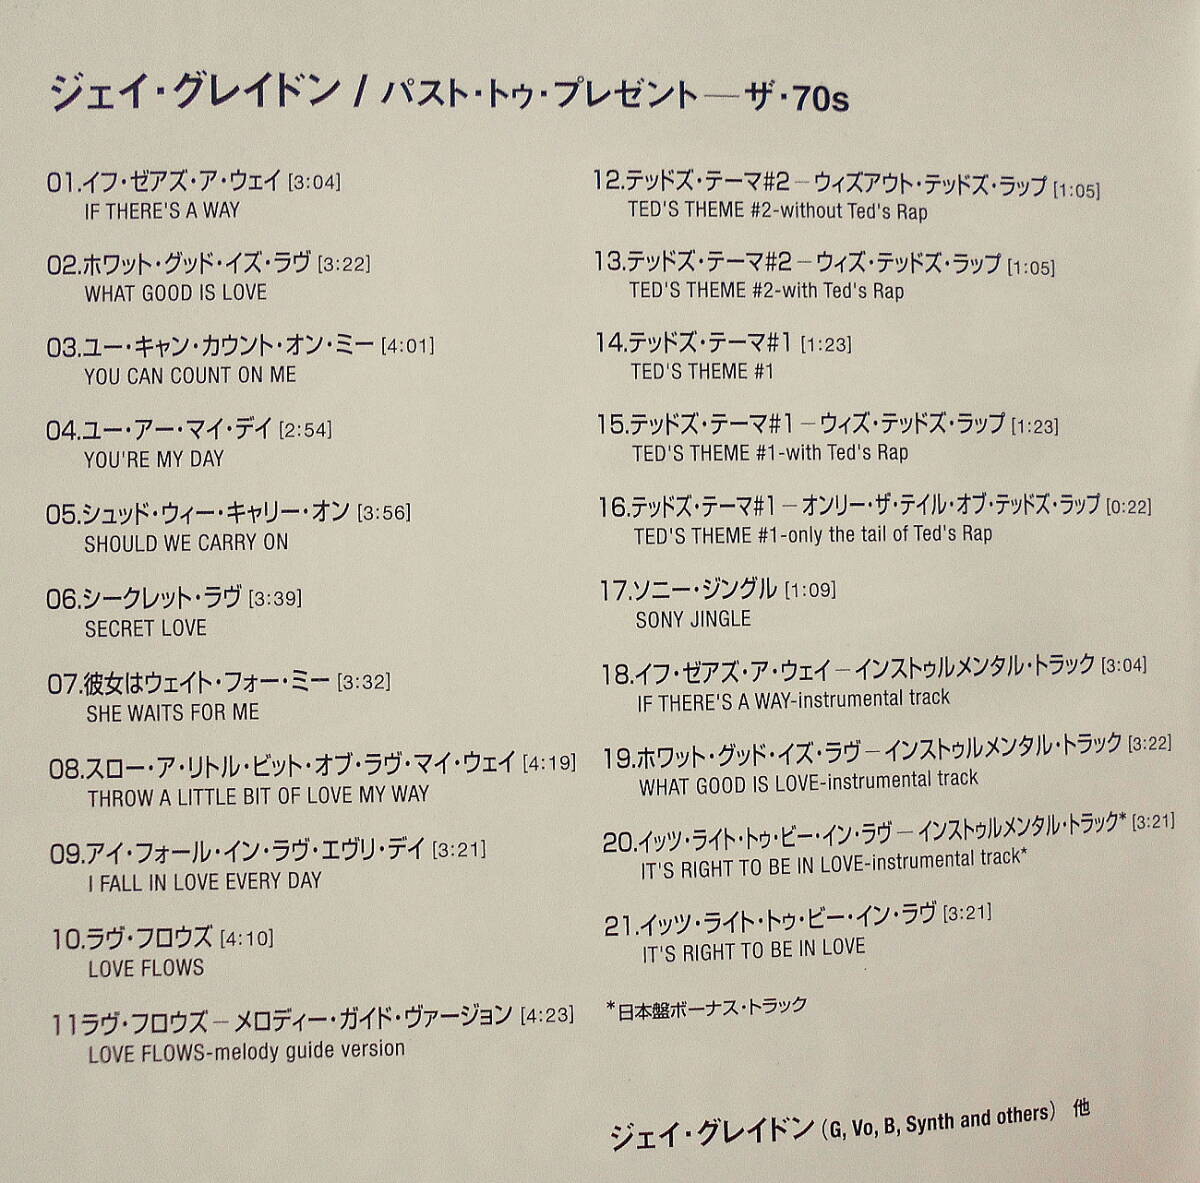 ジェイ・グレイドン / パスト・トゥ・プレゼント — ザ・70s
01.イフ・ゼアズ・ア・ウェイ [3:04]
IF THERE'S A WAY
02.ホワット・グッド・イズ・ラヴ [3:22]
WHAT GOOD IS LOVE
03.ユー・キャン・カウント・オン・ミー [4:01]
YOU CAN COUNT ON ME
04.ユー・アー・マイ・デイ [2:54]
YOU'RE MY DAY
05.シュッド・ウィー・キャリー・オン [3:56]
SHOULD WE CARRY ON
06.シークレット・ラヴ [3:39]
SECRET LOVE
07.彼女はウェイト・フォー・ミー [3:32]
SHE WAITS FOR ME
08.スロー・ア・リトル・ビット・オブ・ラヴ・マイ・ウェイ [4:19]
THROW A LITTLE BIT OF LOVE MY WAY
09.アイ・フォール・イン・ラヴ・エヴリ・デイ [3:21]
I FALL IN LOVE EVERY DAY
10.ラヴ・フロウズ [4:10]
LOVE FLOWS
11ラヴ・フロウズ－メロディー・ガイド・ヴァージョン [4:23]
LOVE FLOWS-melody guide version
12.テッドズ・テーマ#2－ウィズアウト・テッドズ・ラップ [1:05]
TED'S THEME #2-without Ted's Rap
13.テッドズ・テーマ#2－ウィズ・テッドズ・ラップ [1:05]
TED'S THEME #2-with Ted's Rap
14.テッドズ・テーマ#1 [1:23]
TED'S THEME #1
15.テッドズ・テーマ#1－ウィズ・テッドズ・ラップ [1:23]
TED'S THEME #1-with Ted's Rap
16.テッドズ・テーマ#1－オンリー・ザ・テイル・オブ・テッドズ・ラップ [0:22]
TED'S THEME #1-only the tail of Ted's Rap
17.ソニー・ジングル [1:09]
SONY JINGLE
18.イフ・ゼアズ・ア・ウェイ－インストゥルメンタル・トラック [3:04]
IF THERE'S A WAY-instrumental track
19.ホワット・グッド・イズ・ラヴ－インストゥルメンタル・トラック [3:22]
WHAT GOOD IS LOVE-instrumental track
20.イッツ・ライト・トゥ・ビー・イン・ラヴ－インストゥルメンタル・トラック* [3:21]
IT'S RIGHT TO BE IN LOVE-instrumental track*
21.イッツ・ライト・トゥ・ビー・イン・ラヴ [3:21]
IT'S RIGHT TO BE IN LOVE
*日本盤ボーナス・トラック
ジェイ・グレイドン (G, Vo, B, Synth and others) 他